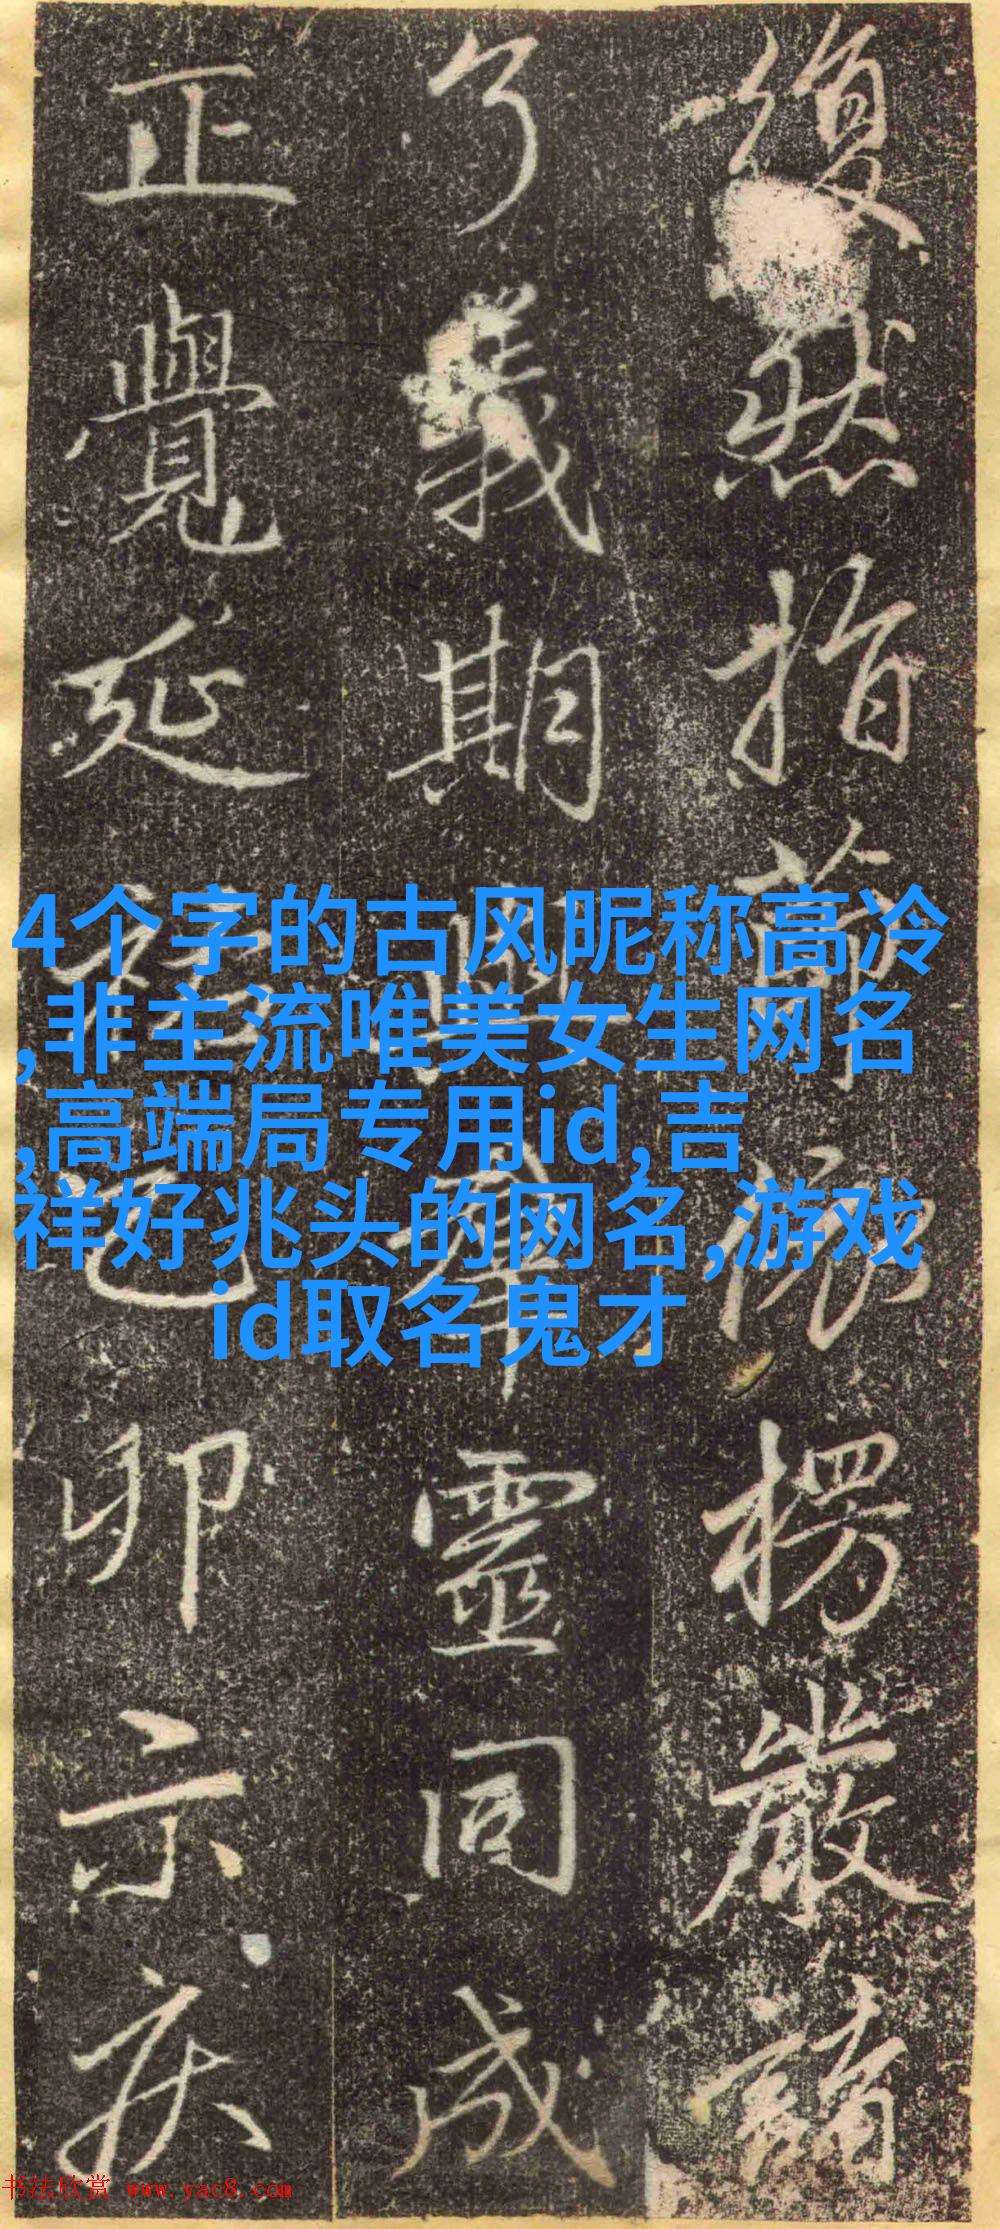 復然指前流楞嚴讀
了義期四眾靈同成
正覺延祐己卯示疾
4个字的古风昵称高冷
,非主流唯美女生网名
,高端局专用id,吉
祥好兆头的网名,游戏
id取名鬼才
书法欣赏 www.yac8.com